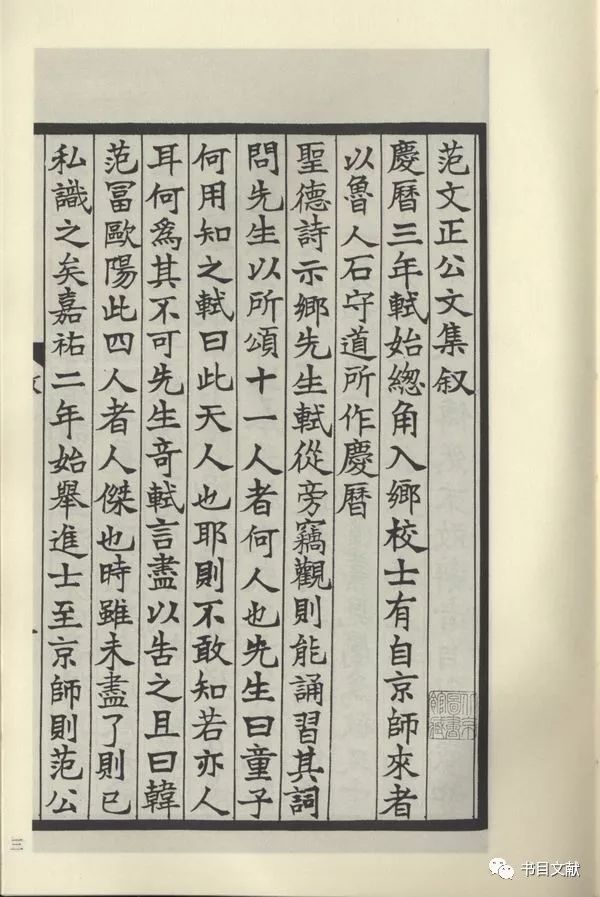 范文正公文集叙
慶曆三年軾始緫角入鄉校士有自京師來者
以魯人石守道所作慶曆
聖德詩示鄉先生軾從旁竊觀則能誦習其詞
問先生以所頌十一人者何人也先生曰童子
何用知之軾曰此天人也耶則不敢知若亦人
耳何爲其不可先生竒軾言盡以告之且曰韓
范冨歐陽此四人者人傑也時雖未盡了則已
私識之矣嘉祐二年始舉進士至京師則范公
三
书目文献